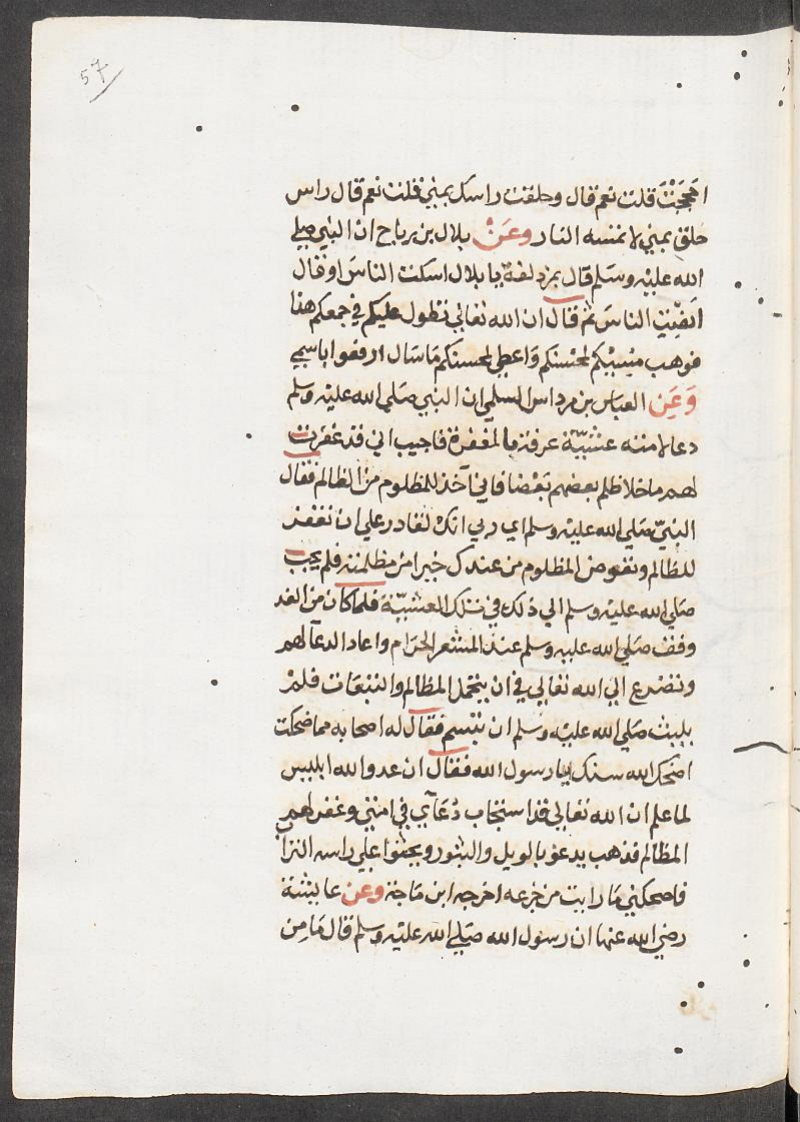 57
احججت قلت نعم قال وحلقت راسك بمني قلت نعم قال راس
حلق بمني لا تمسه النار وعن بلال بن رباح ان النبي صلي
الله عليه وسلم قال بمزدلفة يا بلال اسكت الناس او قال
انصت الناس ثم قال ان الله تعالي تطول عليكم في جمعكم هذا
فوهب مسيئكم لمحسنكم واعطي لمحسنكم ما سال ارفعوا باسم
وعن العباس بن مرداس السلمي ان النبي صلي الله عليه وسلم
دعا لامته عشية عرفة بالمغفرة فاجيب اني قد غفرت
لهم ما خلا ظلم بعضهم بعضا فاني آخذ للمظلوم من الظالم فقال
النبي صلي الله عليه وسلم اي ربي انك لقادر علي ان تغفر
للظالم وتعوض المظلوم من عندك خيرا من مظلمته فلم يجب
صلي الله عليه وسلم الي ذلك في تلك العشية فلما كان من الغد
وقف صلي الله عليه وسلم عند المشعر الحرام واعاد الدعآ لهم
وتضرع الي الله تعالي في ان يتحمل المظالم والتبعات فلم
يلبث صلي الله عليه وسلم ان تبسم فقال له اصحابه مما ضحكت
اضحك الله سنك يا رسول الله فقال ان عدو الله ابليس
لما علم ان الله تعالي قد استجاب دعآي في امتي وغفر لهم
المظالم فذهب يدعو بالويل والثبور ويحثوا علي راسه التراب
فاضحكني ما رايت من جزعه اخرجه ابن ماجة وعن عايشة
رضي الله عنها ان رسول الله صلي الله عليه وسلم قال ما من